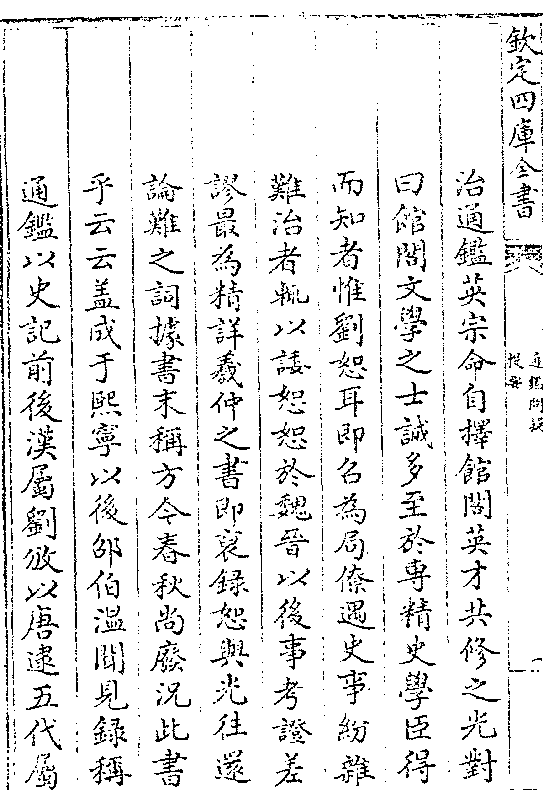 欽定四庫全書
通鑑問疑
提要
治通鑑英宗命自擇館閣英才共修之光對
曰館閣文學之士誠多至於専精史學臣得
而知者惟劉恕耳即召為局僚遇史事紛雜
難治者輒以諉恕恕於魏晉以後事考證差
謬最為精詳羲仲之書即裒録恕與光往還
論難之詞據書末稱方今春秋尚廢況此書
乎云云盖成于熙寧以後邵伯温聞見録稱
通鑑以史記前後漢屬劉攽以唐逮五代屬